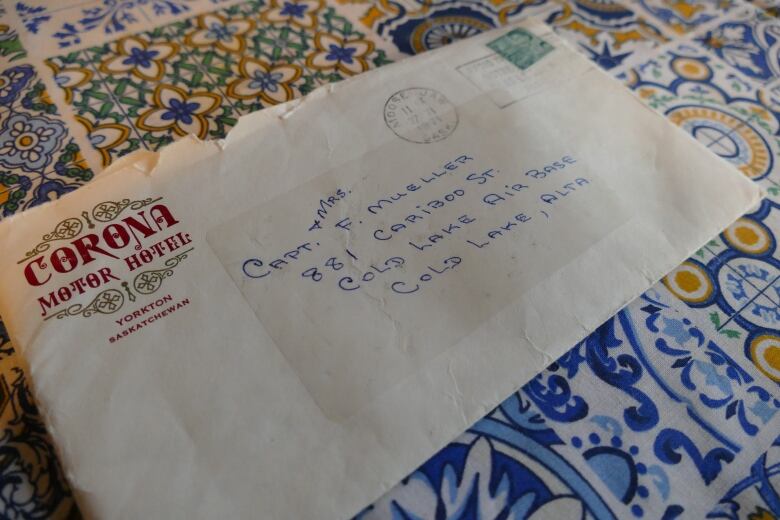 CORONA
MOTOR HOTEL
YORKTON
SASKATCHEWAN
MOOSE JAW
SASK
& MRS.
CAPT. F. MUELLER
881 CARIBOO ST.
COLD LAKE AIR BASE
COLD LAKE, ALTA